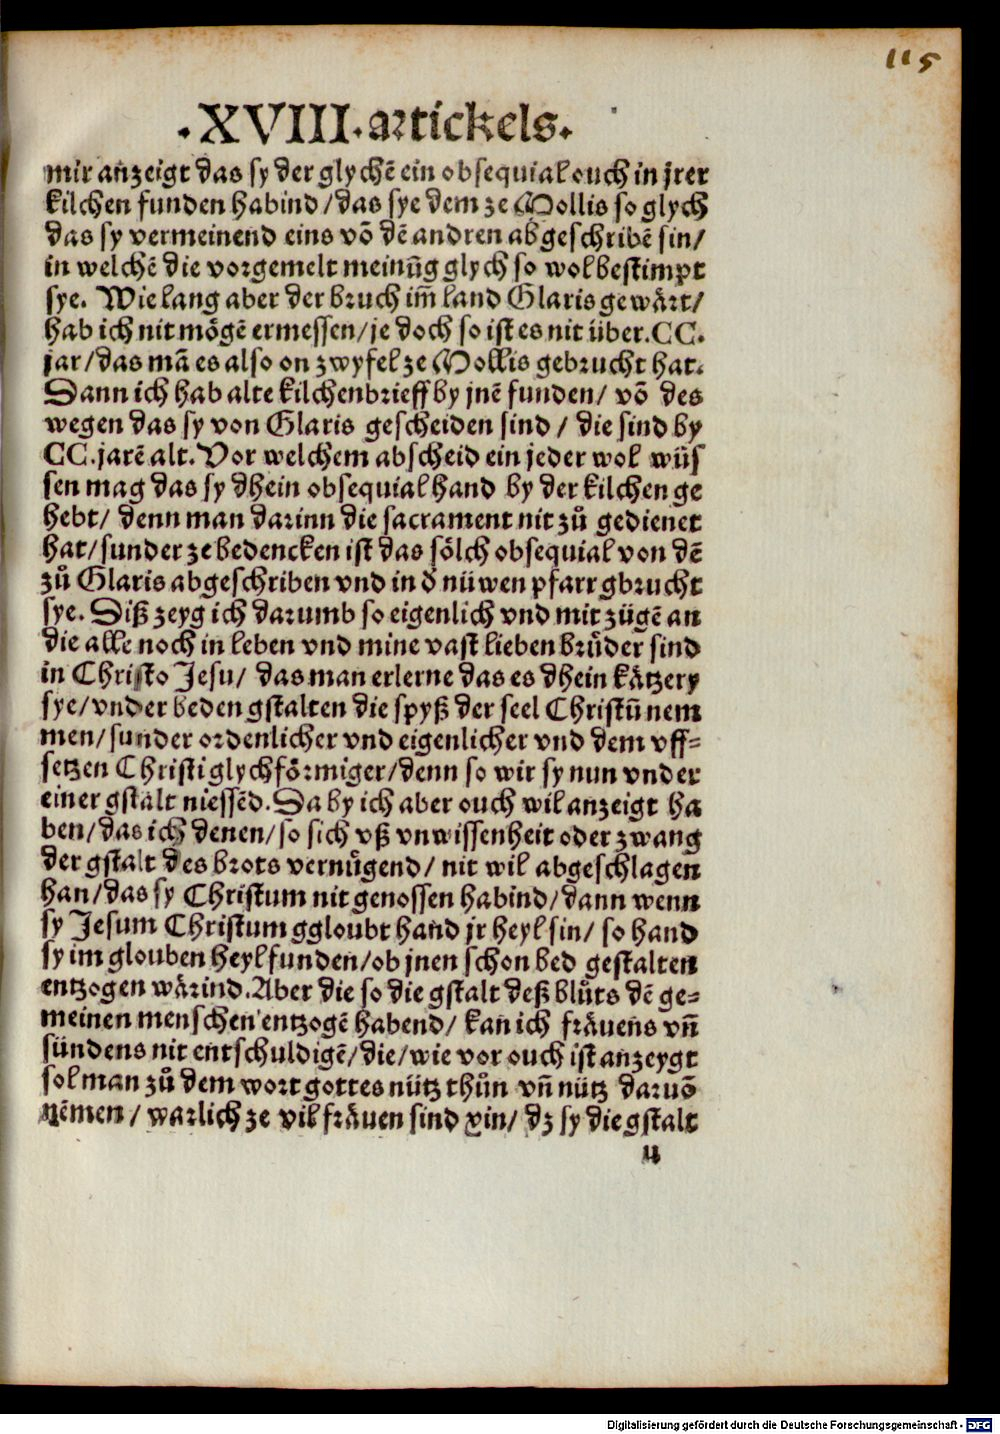 115
.XVIII.artickels.
mir anzeigt das sy der glychē ein obsequial ouch in jrer
kilchen funden habind/das sye dem ze Mollis so glych
das sy vermeinend eins vō dē andren abgeschribē sin/
in welchē die vorgemelt meinūg glych so wol bestimpt
sye. Wie lang aber der bruch im̄ land Glaris gewärt/
hab ich nit mögē ermessen/je doch so ist es nit über.CC.
jar/das mā es also on zwyfel ze Mollis gebrucht hat.
Dann ich hab alte kilchenbrieff by jnē funden/ vō des
wegen das sy von Glaris gescheiden sind / die sind by
CC.jarē alt. Vor welchem abscheid ein jeder wol wüs
sen mag das sy dhein obsequial hand by der kilchen ge
hebt/ denn man darinn die sacrament nit zů gedienet
hat/sunder ze bedencken ist das sölch obsequial von dē
zů Glaris abgeschriben vnd in d̄ nüwen pfarr gbrucht
sye. Diß zeyg ich darumb so eigenlich vnd mit zügē an
die alle noch in leben vnd mine vast lieben brůder sind
in Christo Jesu/ das man erlerne das es dhein kätzery
sye/vnder beden gstalten die spyß der seel Christū nem
men/sunder ordenlicher vnd eigenlicher vnd dem vff-
setzen Christi glychförmiger/denn so wir sy nun vnder
einer gstalt niessēd. Da by ich aber ouch wil anzeigt ha
ben/das ich denen/so sich vß vnwissenheit oder zwang
der gstalt des brots vernůgend/ nit wil abgeschlagen
han/das sy Christum nit genossen habind/dann wenn
sy Jesum Christum ggloubt hand jr heyl sin/ so hand
sy im glouben heyl funden/ob jnen schon bed gestalten
entzogen wärind. Aber die so die gstalt deß blůts dē ge-
meinen menschen entzogē habend/ kan ich fräuens vn̄
sündens nit entschuldigē/die/wie vor ouch ist anzeygt
sol man zů dem wort gottes nütz thůn vn̄ nütz daruō
nēmen / warlich ze vil fräuen sind xin/ dz sy die gstalt
u
Digitalisierung gefördert durch die Deutsche Forschungsgemeinschaft - DFG